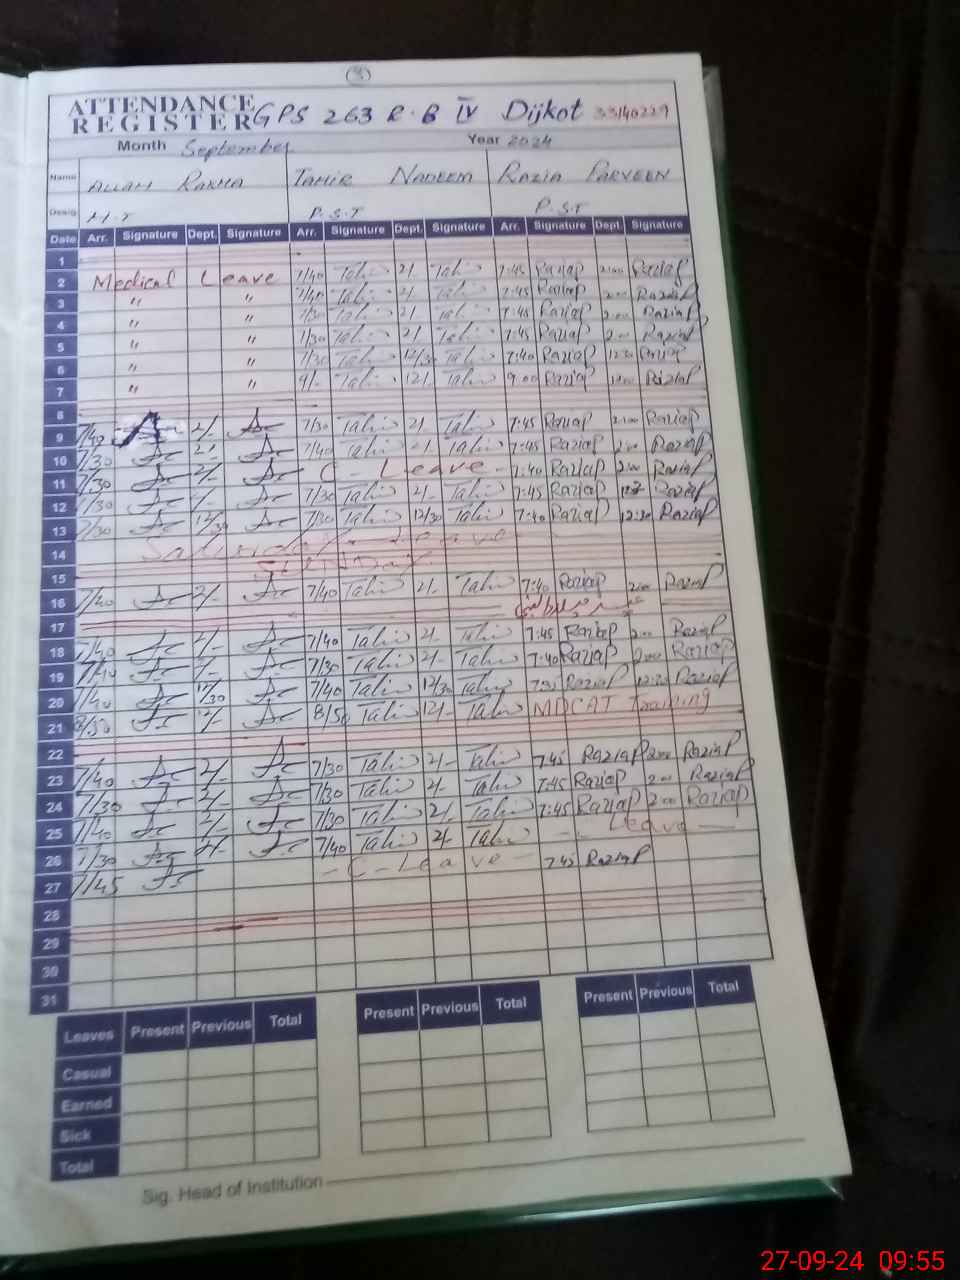 ATTENDANCE REGISTER GPS 263 R.B IV Dijkot 33140229
Month September Year 2024
Name ALLAH RAKHA TAHIR NADEEM RAZIA PARVEEN
Desig. H.T P.S.T P.S.T
Date Arr. Signature Dept. Signature Arr. Signature Dept. Signature Arr. Signature Dept. Signature
1
2 Medical Leave 7/40 Tahir 2/- Tahir 7:45 RaziaP 2:00 RaziaP
3 " " 7/40 Tahir 2/- Tahir 7:45 RaziaP 2:00 RaziaP
4 " " 7/30 Tahir 2/- Tahir 7:45 RaziaP 2:00 RaziaP
5 " " 7/30 Tahir 2/- Tahir 7:45 RaziaP 2:00 RaziaP
6 " " 7/30 Tahir 12/30 Tahir 7:40 RaziaP 12:30 RaziaP
7 " " 9/- Tahir 12/- Tahir 9:00 RaziaP 12:00 RaziaP
8
9 7/40 2/- 7/30 Tahir 2/- Tahir 7:45 RaziaP 2:00 RaziaP
10 7/30 2/- 7/40 Tahir 2/- Tahir 7:45 RaziaP 2:00 RaziaP
11 7/30 2/- C - Leave - 7:40 RaziaP 2:00 RaziaP
12 7/30 2/- 7/30 Tahir 2/- Tahir 7:45 RaziaP RaziaP
13 7/30 12/30 7/30 Tahir 12/30 Tahir 7:40 RaziaP 12:30 RaziaP
14
15
16 7/40 2/- 7/40 Tahir 2/- Tahir 7:40 RaziaP 2:00 RaziaP
17
18 7/40 2/- 7/40 Tahir 2/- Tahir 7:45 RaziaP 2:00 RaziaP
19 7/40 2/- 7/30 Tahir 2/- Tahir 7:40 RaziaP 2:00 RaziaP
20 7/40 12/30 7/40 Tahir 12/30 Tahir RaziaP 12:30 RaziaP
21 8/50 12/- 8/50 Tahir 12/- Tahir MDCAT Training
22
23 7/40 2/- 7/30 Tahir 2/- Tahir 7:45 RaziaP 2:00 RaziaP
24 7/30 2/- 7/30 Tahir 2/- Tahir 7:45 RaziaP 2:00 RaziaP
25 7/40 2/- 7/30 Tahir 2/- Tahir 7:45 RaziaP 2:00 RaziaP
26 7/30 2/- 7/40 Tahir 2/- Tahir Leave
27 7/45 - C - Leave - 7:45 RaziaP
28
29
30
31
Leaves Present Previous Total Present Previous Total Present Previous Total
Casual
Earned
Sick
Total
Sig. Head of Institution
27-09-24 09:55